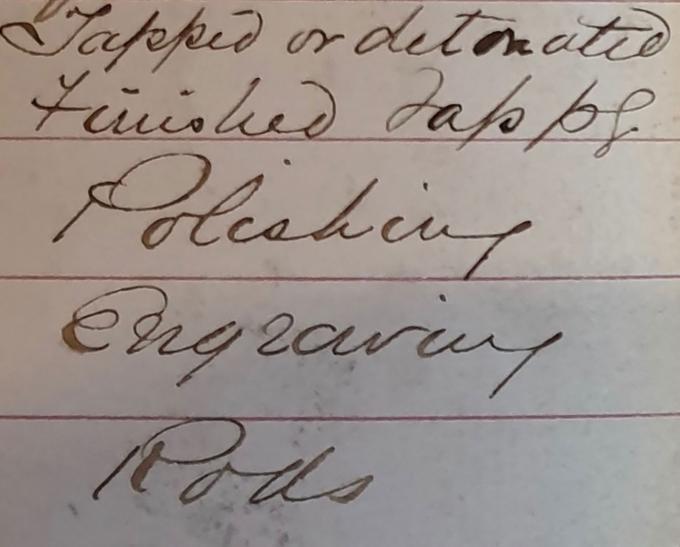 Tapped or detonated
Finished Tappg
Polishing
Engraving
Rods